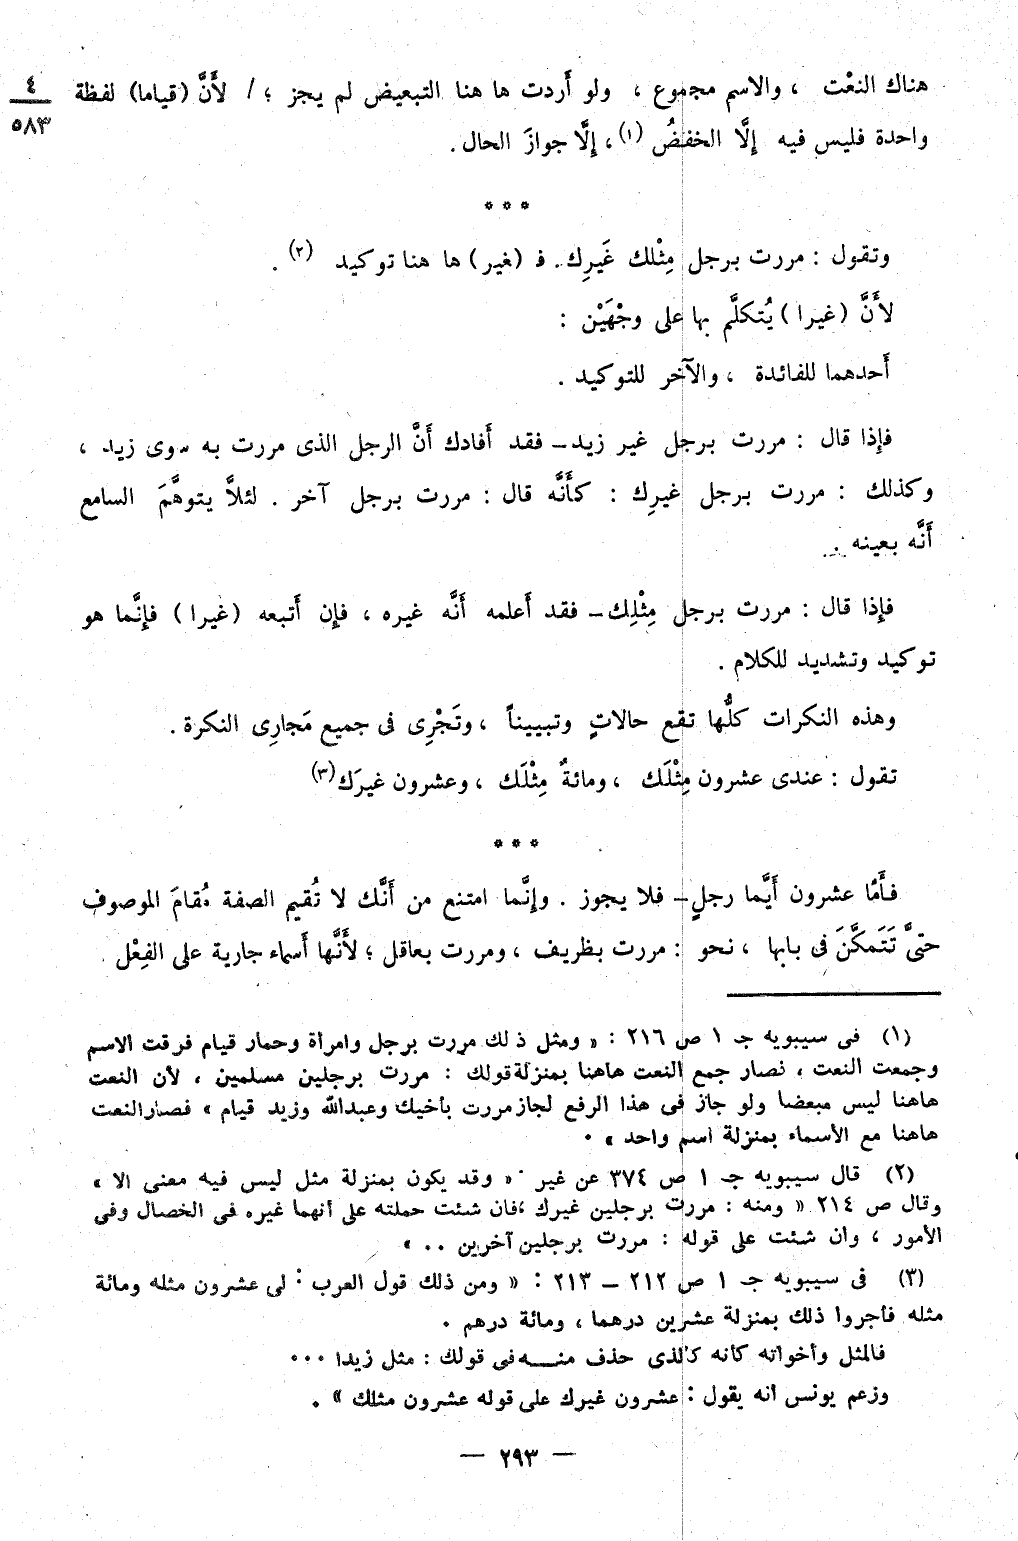 هناك النعْت ، والاسم مجموع ، ولو أَردت ها هنا التبعيض لم يجز ؛ / لأَنَّ (قياما) لفظة
٤
٥٨٣
واحدة فليس فيه إِلَّا الخفضُ (١) ، إِلَّا جوازَ الحال .
* * *
وتقول : مررت برجل مِثْلك غَيرِك . فـ (غير) ها هنا توكيد (٢) .
لأَنَّ (غيرا) يُتكلَّم بها على وجْهَيْن :
أَحدهما للفائدة ، والآخر للتوكيد .
فإِذا قال : مررت برجل غير زيد ــ فقد أَفادك أَنَّ الرجل الذى مررت به سوى زيد ،
وكذلك : مررت برجل غيرِك : كأَنَّه قال : مررت برجل آخر . لئلاَّ يتوهَّمَ السامع
أَنَّه بعينه .
فإِذا قال : مررت برجل مِثْلِك ــ فقد أَعلمه أَنَّه غيره ، فإِن أَتبعه (غيرا) فإِنَّما هو
توكيد وتشديد للكلام .
وهذه النكرات كلُّها تقع حالاتٍ وتبييناً ، وتَجْرِى فى جميع مَجارِى النكرة .
تقول : عندى عشرون مِثْلَك ، ومائةٌ مِثْلَك ، وعشرون غيرَك (٣)
* * *
فأَمَّا عشرون أَيَّما رجلٍ ــ فلا يجوز . وإِنَّما امتنع من أَنَّك لا تُقيم الصفة مُقامَ الموصوف
حتىَّ تَتَمكَّنَ فى بابها ، نحو : مررت بظريف ، ومررت بعاقل ؛ لأَنَّها أَسماء جارية على الفِعْل .
(١) فى سيبويه جـ ١ ص ٢١٦ : « ومثل ذلك مررت برجل وامرأة وحمار قيام فرقت الاسم
وجمعت النعت ، فصار جمع النعت هاهنا بمنزلة قولك : مررت برجلين مسلمين ، لأن النعت
هاهنا ليس مبعضا ولو جاز فى هذا الرفع لجاز مررت بأخيك وعبدالله وزيد قيام » فصار النعت
هاهنا مع الأسماء بمنزلة اسم واحد » .
(٢) قال سيبويه جـ ١ ص ٣٧٤ عن غير : « وقد يكون بمنزلة مثل ليس فيه معنى الا »
وقال ص ٢١٤ « ومنه : مررت برجلين غيرك ، فان شئت حملته على أنهما غيره فى الخصال وفى
الأمور ، وان شئت على قوله : مررت برجلين آخرين .. »
(٣) فى سيبويه جـ ١ ص ٢١٢ ــ ٢١٣ : « ومن ذلك قول العرب : لى عشرون مثله ومائة
مثله فأجروا ذلك بمنزلة عشرين درهما ، ومائة درهم .
فالمثل وأخواته كأنه كالذى حذف منــه فى قولك : مثل زيدا ...
وزعم يونس أنه يقول : عشرون غيرك على قوله عشرون مثلك » .
ــ ٢٩٣ ــ